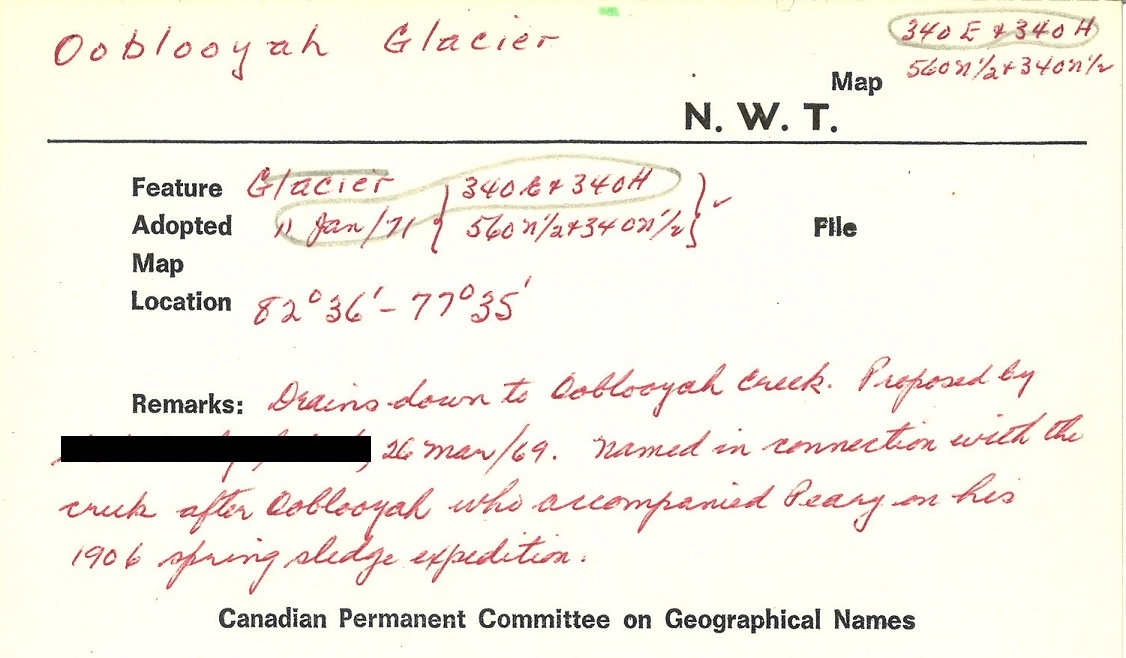 Ooblooyah Glacier
340 E & 340 H
560 N½ & 340 N½
Map
N. W. T.
Feature Glacier 340 E & 340 H
Adopted 11 Jan/71 560 N½ & 340 N½
File
Map
Location 82°36' - 77°35'
Remarks: Drains down to Ooblooyah Creek. Proposed by
, 26 Mar/69. Named in connection with the
creek after Ooblooyah who accompanied Peary on his
1906 spring sledge expedition.
Canadian Permanent Committee on Geographical Names